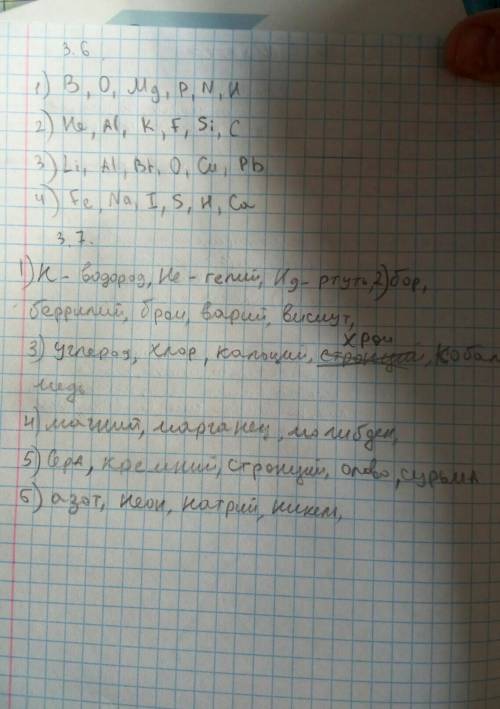 3.6
1) B, O, Mg, P, N, H
2) He, Al, K, F, Si, C
3) Li, Al, Br, O, Cu, Pb
4) Fe, Na, I, S, H, Ca
3.7.
1) H - водород, He - гелий, Hg - ртуть, 2) бор,
бериллий, бром, барий, висмут,
3) углерод, хлор, кальций, хром, кобальт
медь
4) магний, марганец, молибден,
5) сера, кремний, стронций, олово, сурьма
6) азот, неон, натрий, никель,